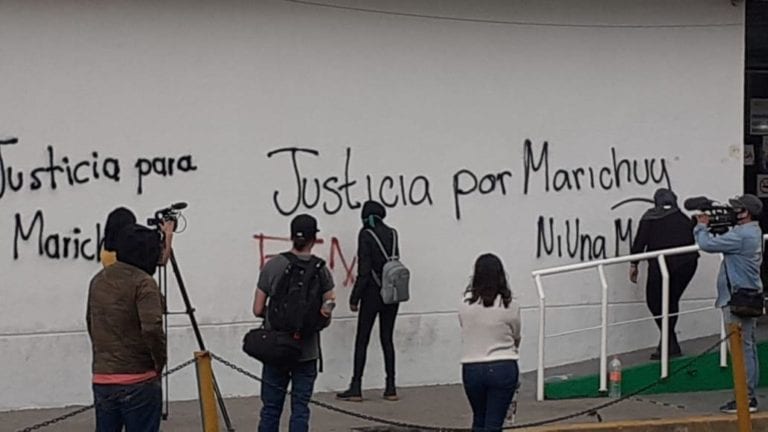 Justicia para
Marich
Justicia por Marichuy
Ni Una M